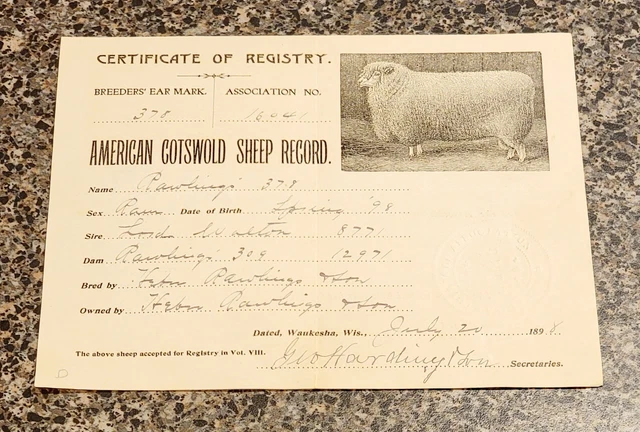 CERTIFICATE OF REGISTRY.
BREEDERS' EAR MARK. ASSOCIATION NO.
378 16041
AMERICAN COTSWOLD SHEEP RECORD.
Name Rawlings 378
Sex Ram Date of Birth Spring 98
Sire Lord 8771
Dam Rawlings 309 12971
Bred by Rawlings & Son
Owned by Rawlings & Son
Dated, Waukesha, Wis., July 20 1898.
The above sheep accepted for Registry in Vol. VIII. Geo Harding & Son Secretaries.
D